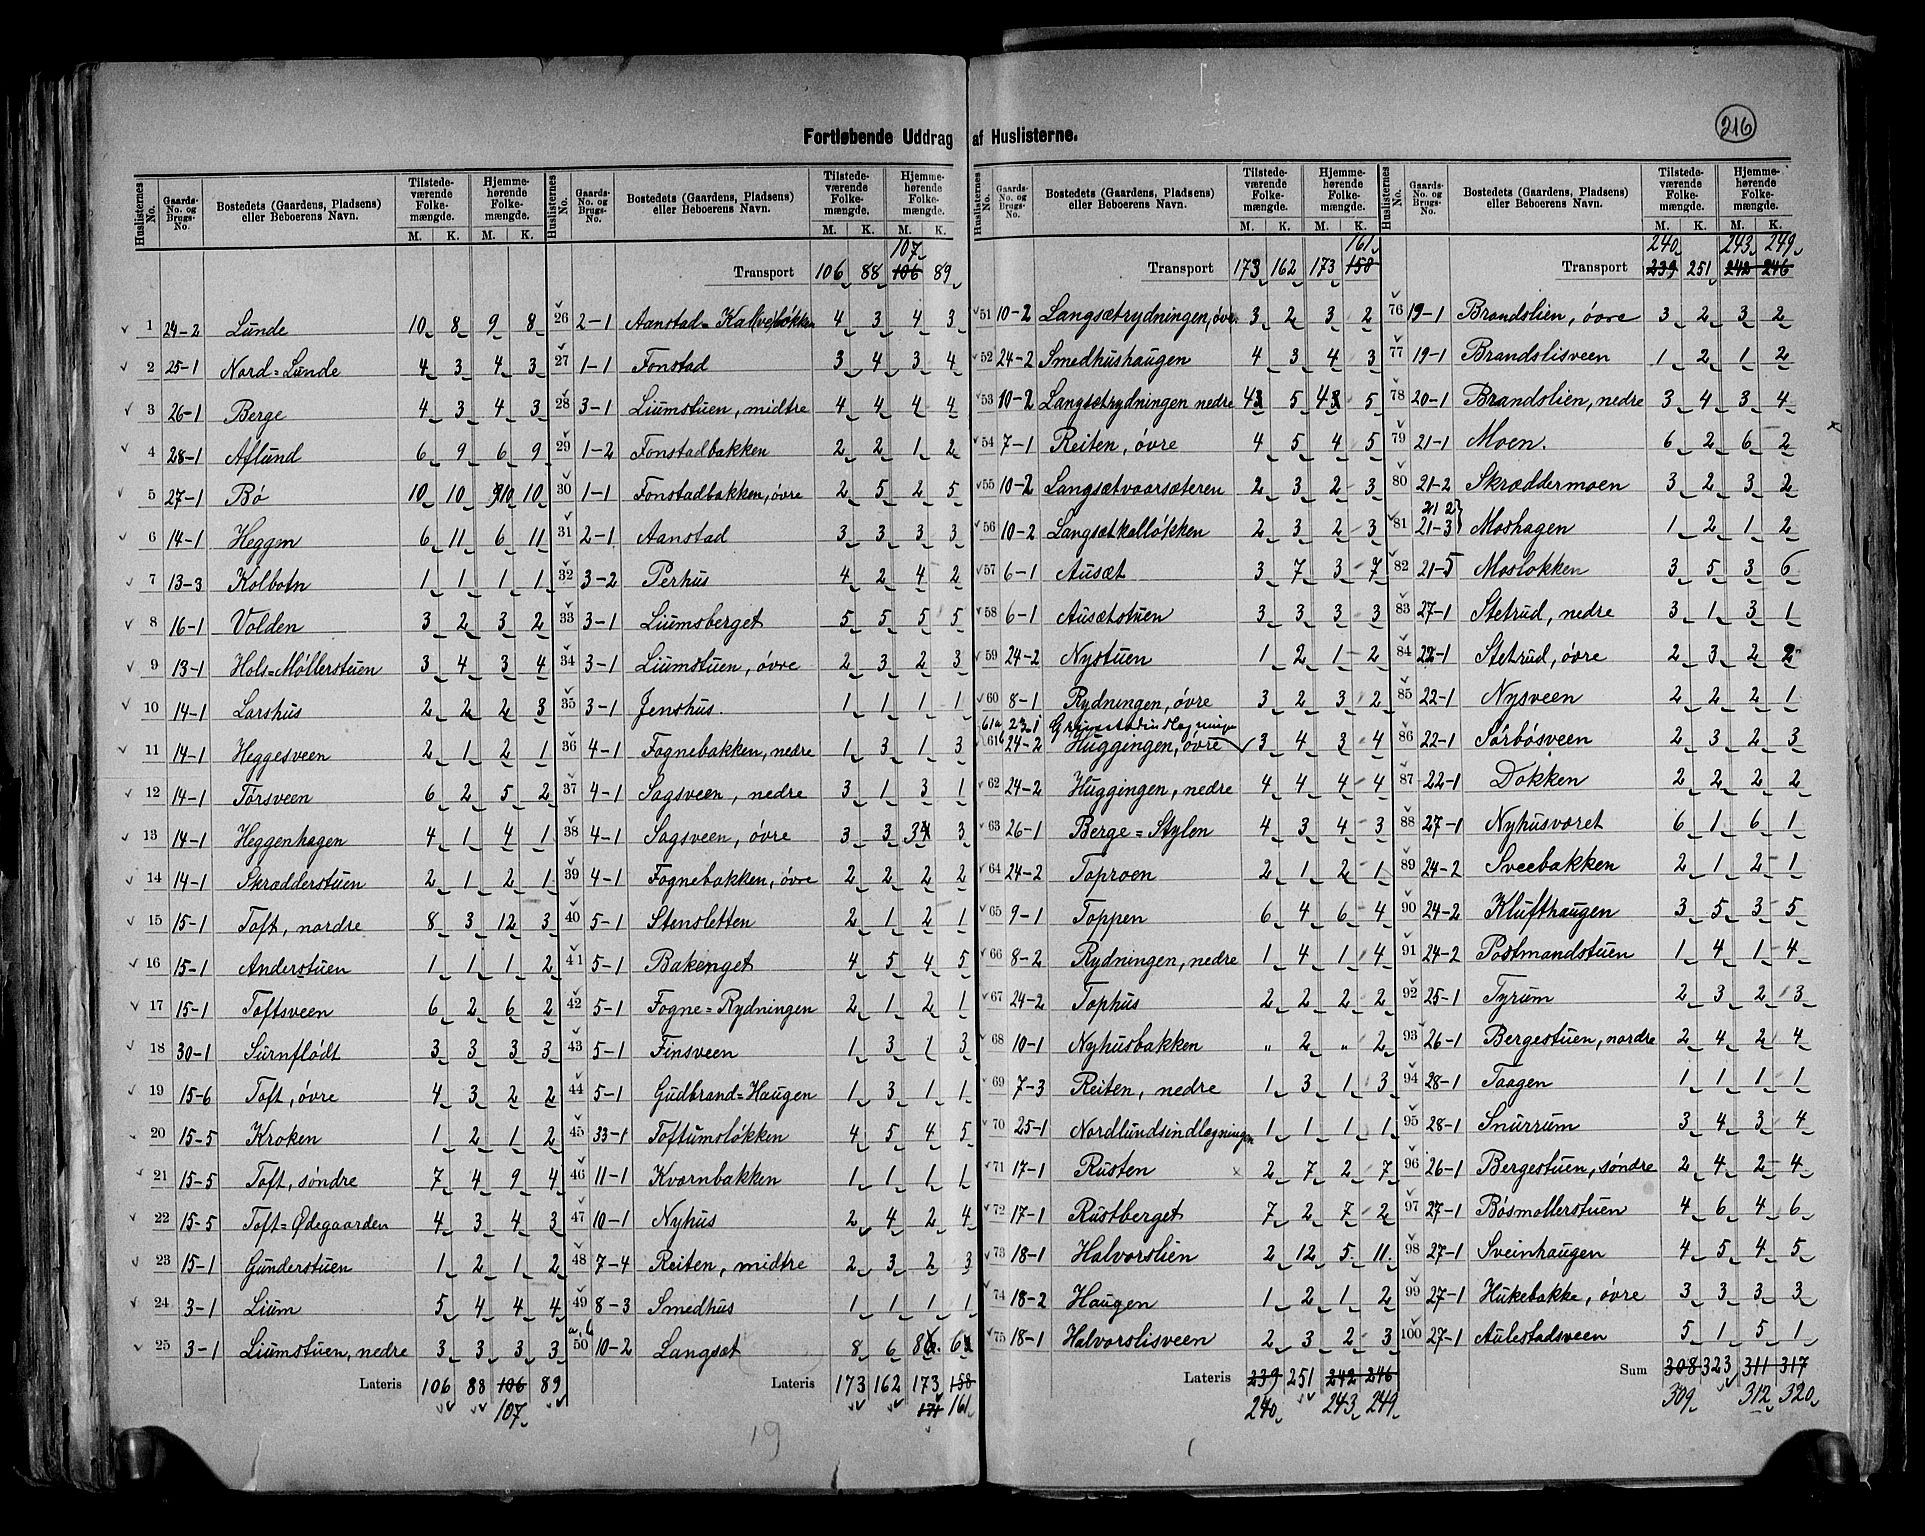 216
Fortløbende Uddrag af Huslisterne.
Huslisternes No. | Gaards-No. og Brugs-No. | Bostedets (Gaardens, Pladsens) eller Beboerens Navn. | Tilstedeværende Folkemængde. M. K. | Hjemmehørende Folkemængde. M. K.
1 24-2 Lunde 10 8 9 8
2 25-1 Nord=Lunde 4 3 4 3
3 26-1 Berge 4 3 4 3
4 28-1 Aflund 6 9 6 9
5 27-1 Bö 10 10 10 10
6 14-1 Heggen 6 11 6 11
7 13-3 Kolbotn 1 1 1 1
8 16-1 Volden 3 2 3 2
9 13-1 Hols=Møllerstuen 3 4 3 4
10 14-1 Larshus 2 2 2 3
11 14-1 Heggesveen 2 1 2 1
12 14-1 Torsveen 6 2 5 2
13 14-1 Heggenhagen 4 1 4 1
14 14-1 Skrædderstuen 2 1 2 1
15 15-1 Toft, nordre 8 3 12 3
16 15-1 Anderstuen 1 1 1 2
17 15-1 Toftsveen 6 2 6 2
18 30-1 Surnflödt 3 3 3 3
19 15-6 Toft, övre 4 3 2 2
20 15-5 Kroken 1 2 1 2
21 15-5 Toft, söndre 7 4 9 4
22 15-5 Toft=Ødegaarden 4 3 4 3
23 15-1 Gunderstuen 1 2 1 2
24 3-1 Lium 5 4 4 4
25 3-1 Liumstuen, nedre 3 3 3 3
Lateris 106 88 106 89
107
107
Transport 106 88 106 89
26 2-1 Aanstad=Kalveløkken 4 3 4 3
27 1-1 Fonstad 3 4 3 4
28 3-1 Liumstuen, midtre 4 4 4 4
29 1-2 Fonstadbakken 2 2 1 2
30 1-1 Fonstadbakken, övre 2 5 2 5
31 2-1 Aanstad 3 3 3 3
32 3-2 Perhus 4 2 4 2
33 3-1 Liumsberget 5 5 5 5
34 3-1 Liumstuen, övre 2 3 2 3
35 3-1 Jenshus. 1 1 1 1
36 4-1 Fognebakken, nedre 1 3 1 3
37 4-1 Sagsveen, nedre 3 1 3 1
38 4-1 Sagsveen, övre 3 3 3 3
39 4-1 Fognebakken, övre 2 2 2 2
40 5-1 Stensletten 2 1 2 1
41 5-1 Bakenget 4 5 4 5
42 5-1 Fogne=Rydningen 2 1 2 1
43 5-1 Finsveen 1 3 1 3
44 5-1 Gudbrand=Haugen 1 3 1 1
45 33-1 Toftumsløkken 4 5 4 5
46 11-1 Kvernbakken 1 1 1 1
47 10-1 Nyhus 2 4 2 4
48 7-4 Reiten, midtre 2 3 2 3
49 8-3 Smedhus 1 1 1 1
50 10-2 Langsæt 8 6 8 6
Lateris 173 162 173 158
171 161
161
Transport 173 162 173 158
51 10-2 Langsætrydningen, övr. 3 2 3 2
52 24-2 Smedhushaugen 4 3 4 3
53 10-2 Langsætrydningen nedre 4 5 4 5
54 7-1 Reiten, övre 4 5 4 5
55 10-2 Langsætvaarsæteren 2 3 2 3
56 10-2 Langsætkalløkken 2 3 2 3
57 6-1 Ausæt 3 7 3 7
58 6-1 Ausætstuen 3 3 3 3
59 24-2 Nystuen 1 2 1 2
60 8-1 Rydningen, övre 3 2 3 2
61a 23-1
61b 24-2 Huggingen, övre 3 4 3 4
62 24-2 Huggingen, nedre 4 4 4 4
63 26-1 Berge=Stylen 4 3 4 3
64 24-2 Toproen 2 1 2 1
65 9-1 Toppen 6 4 6 4
66 8-2 Rydningen, nedre 1 4 1 4
67 24-2 Tophus 2 2 2 2
68 10-1 Nyhusbakken " 2 " 2
69 7-3 Reiten, nedre 1 3 1 3
70 25-1 Nordlundsindlægningen 1 1 1 1
71 17-1 Rusten x 2 7 2 7
72 17-1 Rustberget 7 2 7 2
73 18-1 Halvorslien 2 12 5 11
74 18-2 Haugen 1 2 1 2
75 18-1 Halvorslisveen 2 3 2 3
Lateris 239 251 242 246
240 243 249
240 243 249
Transport 239 251 242 246
76 19-1 Brandslien, övre 3 2 3 2
77 19-1 Brandslisveen 1 2 1 2
78 20-1 Brandslien, nedre 3 4 3 4
79 21-1 Moen. 6 2 6 2
80 21-2 Skræddermoen 3 2 3 2
21 2
81 21-3 Moshagen 1 2 1 2
82 21-5 Mosløkken 3 5 3 6
83 27-1 Stetrud, nedre 3 1 3 1
84 22-1 Stetrud, övre 2 3 2 2
85 22-1 Nysveen 2 2 2 1
86 22-1 Sørbösveen 2 3 2 3
87 22-1 Dokken 2 2 2 2
88 27-1 Nyhusværet 6 1 6 1
89 24-2 Sveebakken 2 1 2 1
90 24-2 Klufthaugen 3 5 3 5
91 24-2 Postmandstuen 1 4 1 4
92 25-1 Tyrum 2 3 2 3
93 26-1 Bergestuen, nordre 2 4 2 4
94 28-1 Taagen 1 1 1 1
95 28-1 Snurrum 3 4 3 4
96 26-1 Bergestuen, söndre 2 4 2 4
97 27-1 Bösmøllerstuen 4 6 4 6
98 27-1 Sveinhaugen 4 5 4 5
99 27-1 Hukebakke, övre 3 3 3 3
100 27-1 Aulestadsveen 5 1 5 1
Sum 308 323 311 317
309 312 320
19